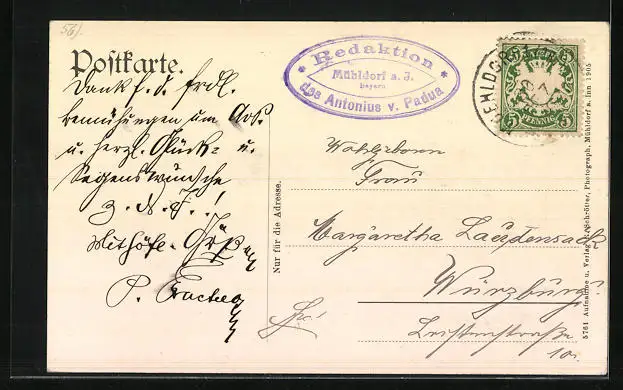 56).
Postkarte.
Dank f. d. frdl.
Bemühungen um
u. herzl. Glück- u.
Segenswünsche
z. N. J.!
P.
* Redaktion *
Mühldorf a. J.
Bayern
des Antonius v. Padua
5 5
PFENNIG
5 5
Wohlgeborn
Frau
Margaretha Laudensack
Würzburg
10.
Nur für die Adresse.
5761 Aufnahme u. Verlag v. Photograph, Mühldorf a. Inn 1905